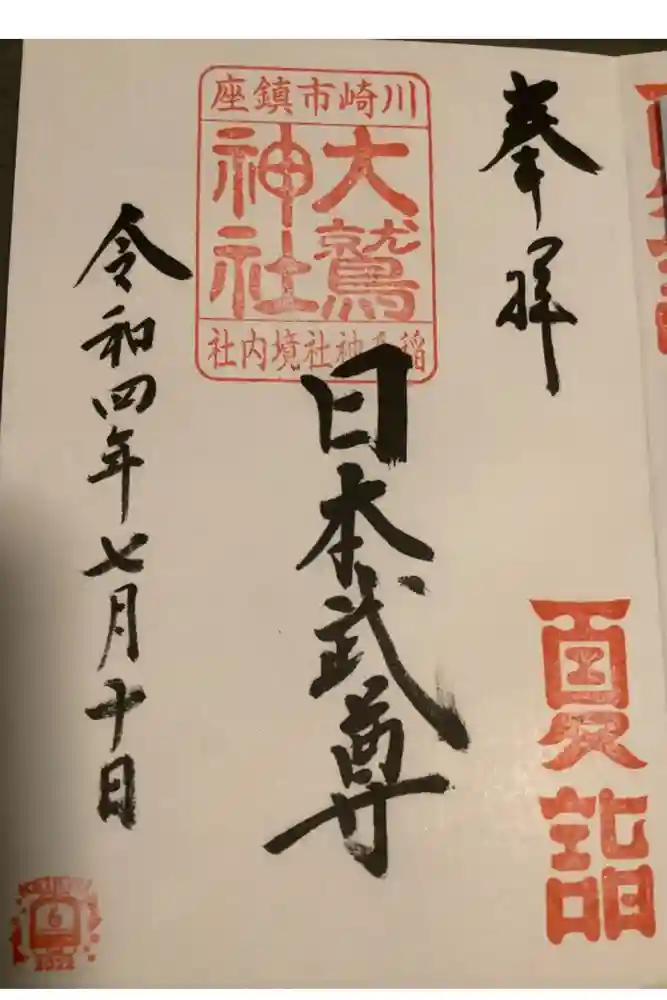 奉拝
夏詣
川崎市鎮座
大鷲
神社
稲毛神社境内社
日本武尊
令和四年七月十日
6
2022